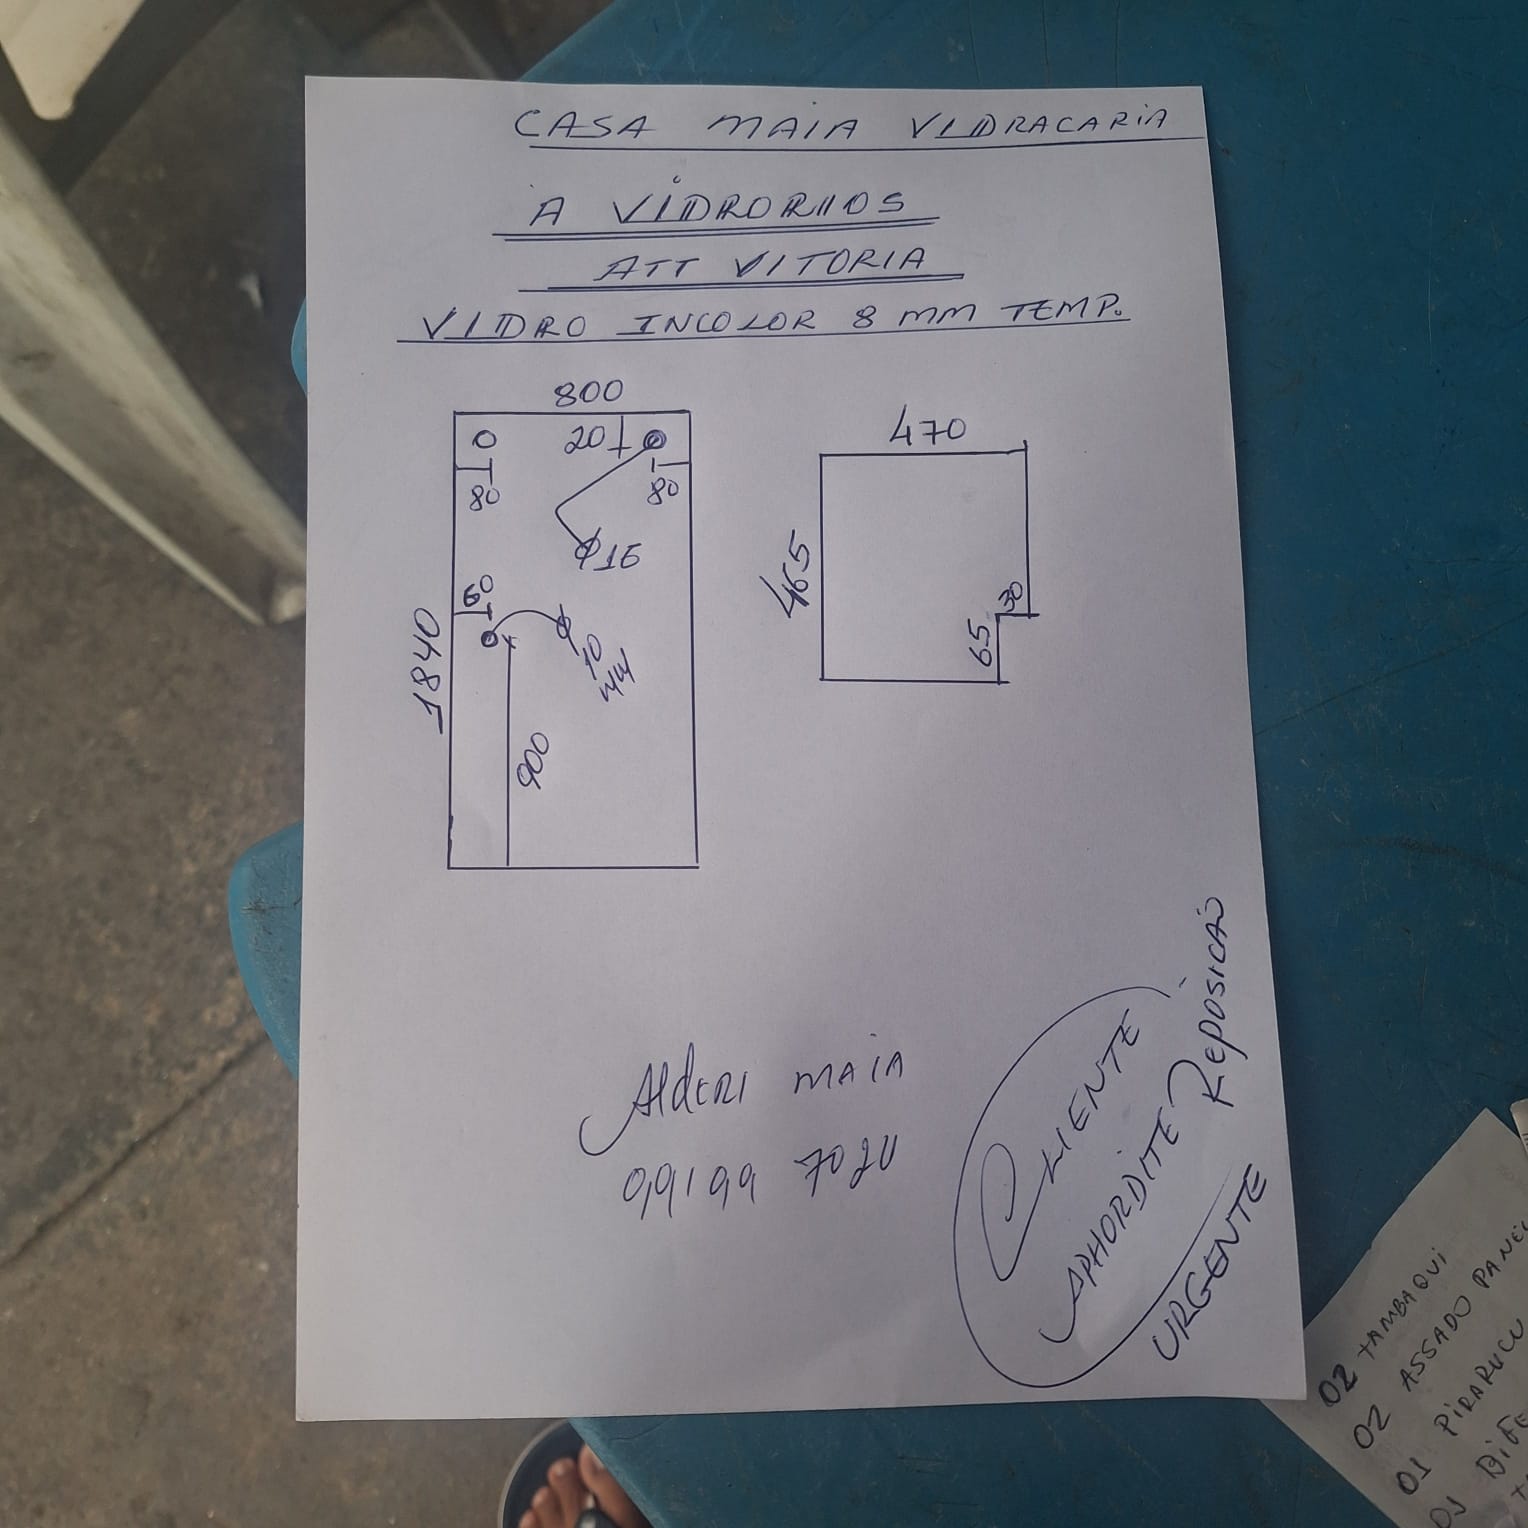 CASA MAIA VIDRACARIA
A VIDRORIOS
ATT VITORIA
VIDRO INCOLOR 8 MM TEMP.
800
20
80
80
Φ16
60
Φ
10
1840
900
470
465
30
65
Alderi MAIA
99199
CLIENTE
APHORDITE Reposicaõ
URGENTE
02 TAMBAQUI
02 ASSADO
01 PIRARUCU